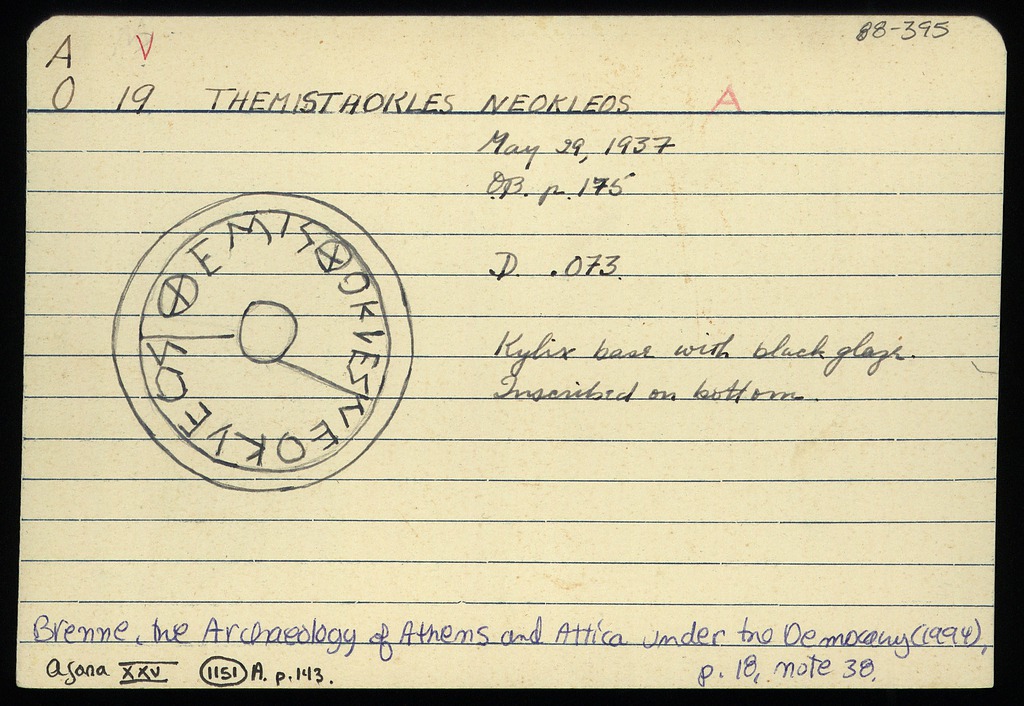 88-395
A V
O 19 THEMISTHOKLES NEOKLEOS A
May 29, 1937
O.B. p. 175
D. .073
ⲐEMISⲐOKLES
NEOKLEOS
Kylix base with black glaze.
Inscribed on bottom.
Brenne, the Archaeology of Athens and Attica under the Democracy (1994),
p. 18, note 38.
Agora XXV 1151 A. p. 143.